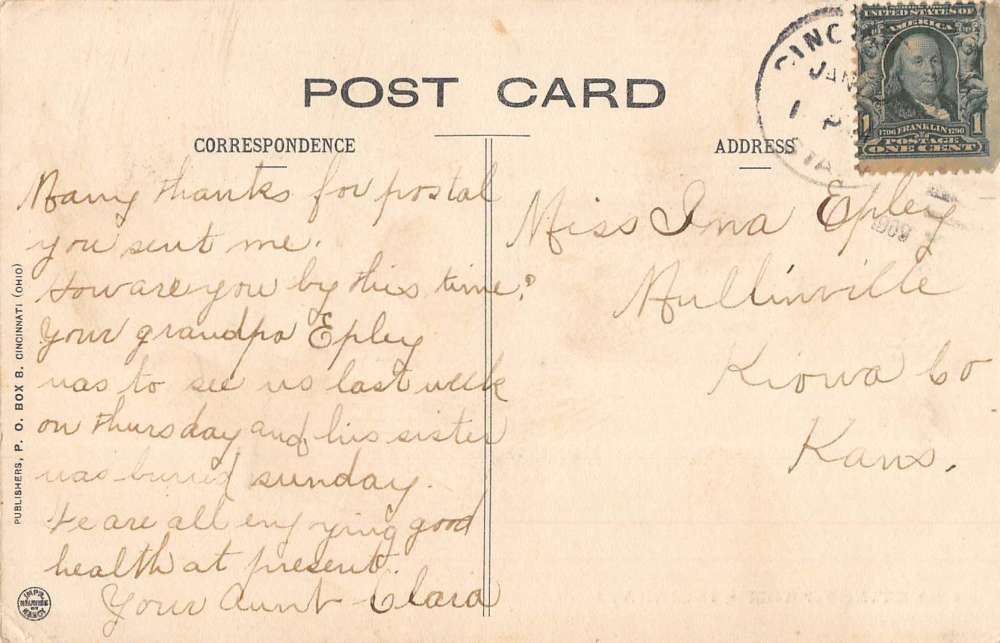 POST CARD
CORRESPONDENCE
ADDRESS
CINC
JAN
1 P
STA
UNITED STATES OF
AMERICA
1 1
1706 FRANKLIN 1790
POSTAGE
ONE CENT
1909
Many thanks for postal
you sent me.
How are you by this time?
Your grandpa Epley
was to see us last week
on thursday and his sister
was buried sunday.
We are all enjoying good
health at present.
Your Aunt Clara
Miss Ina Epley
Mullinville
Kiowa Co
Kans.
PUBLISHERS, P. O. BOX B. CINCINNATI (OHIO)